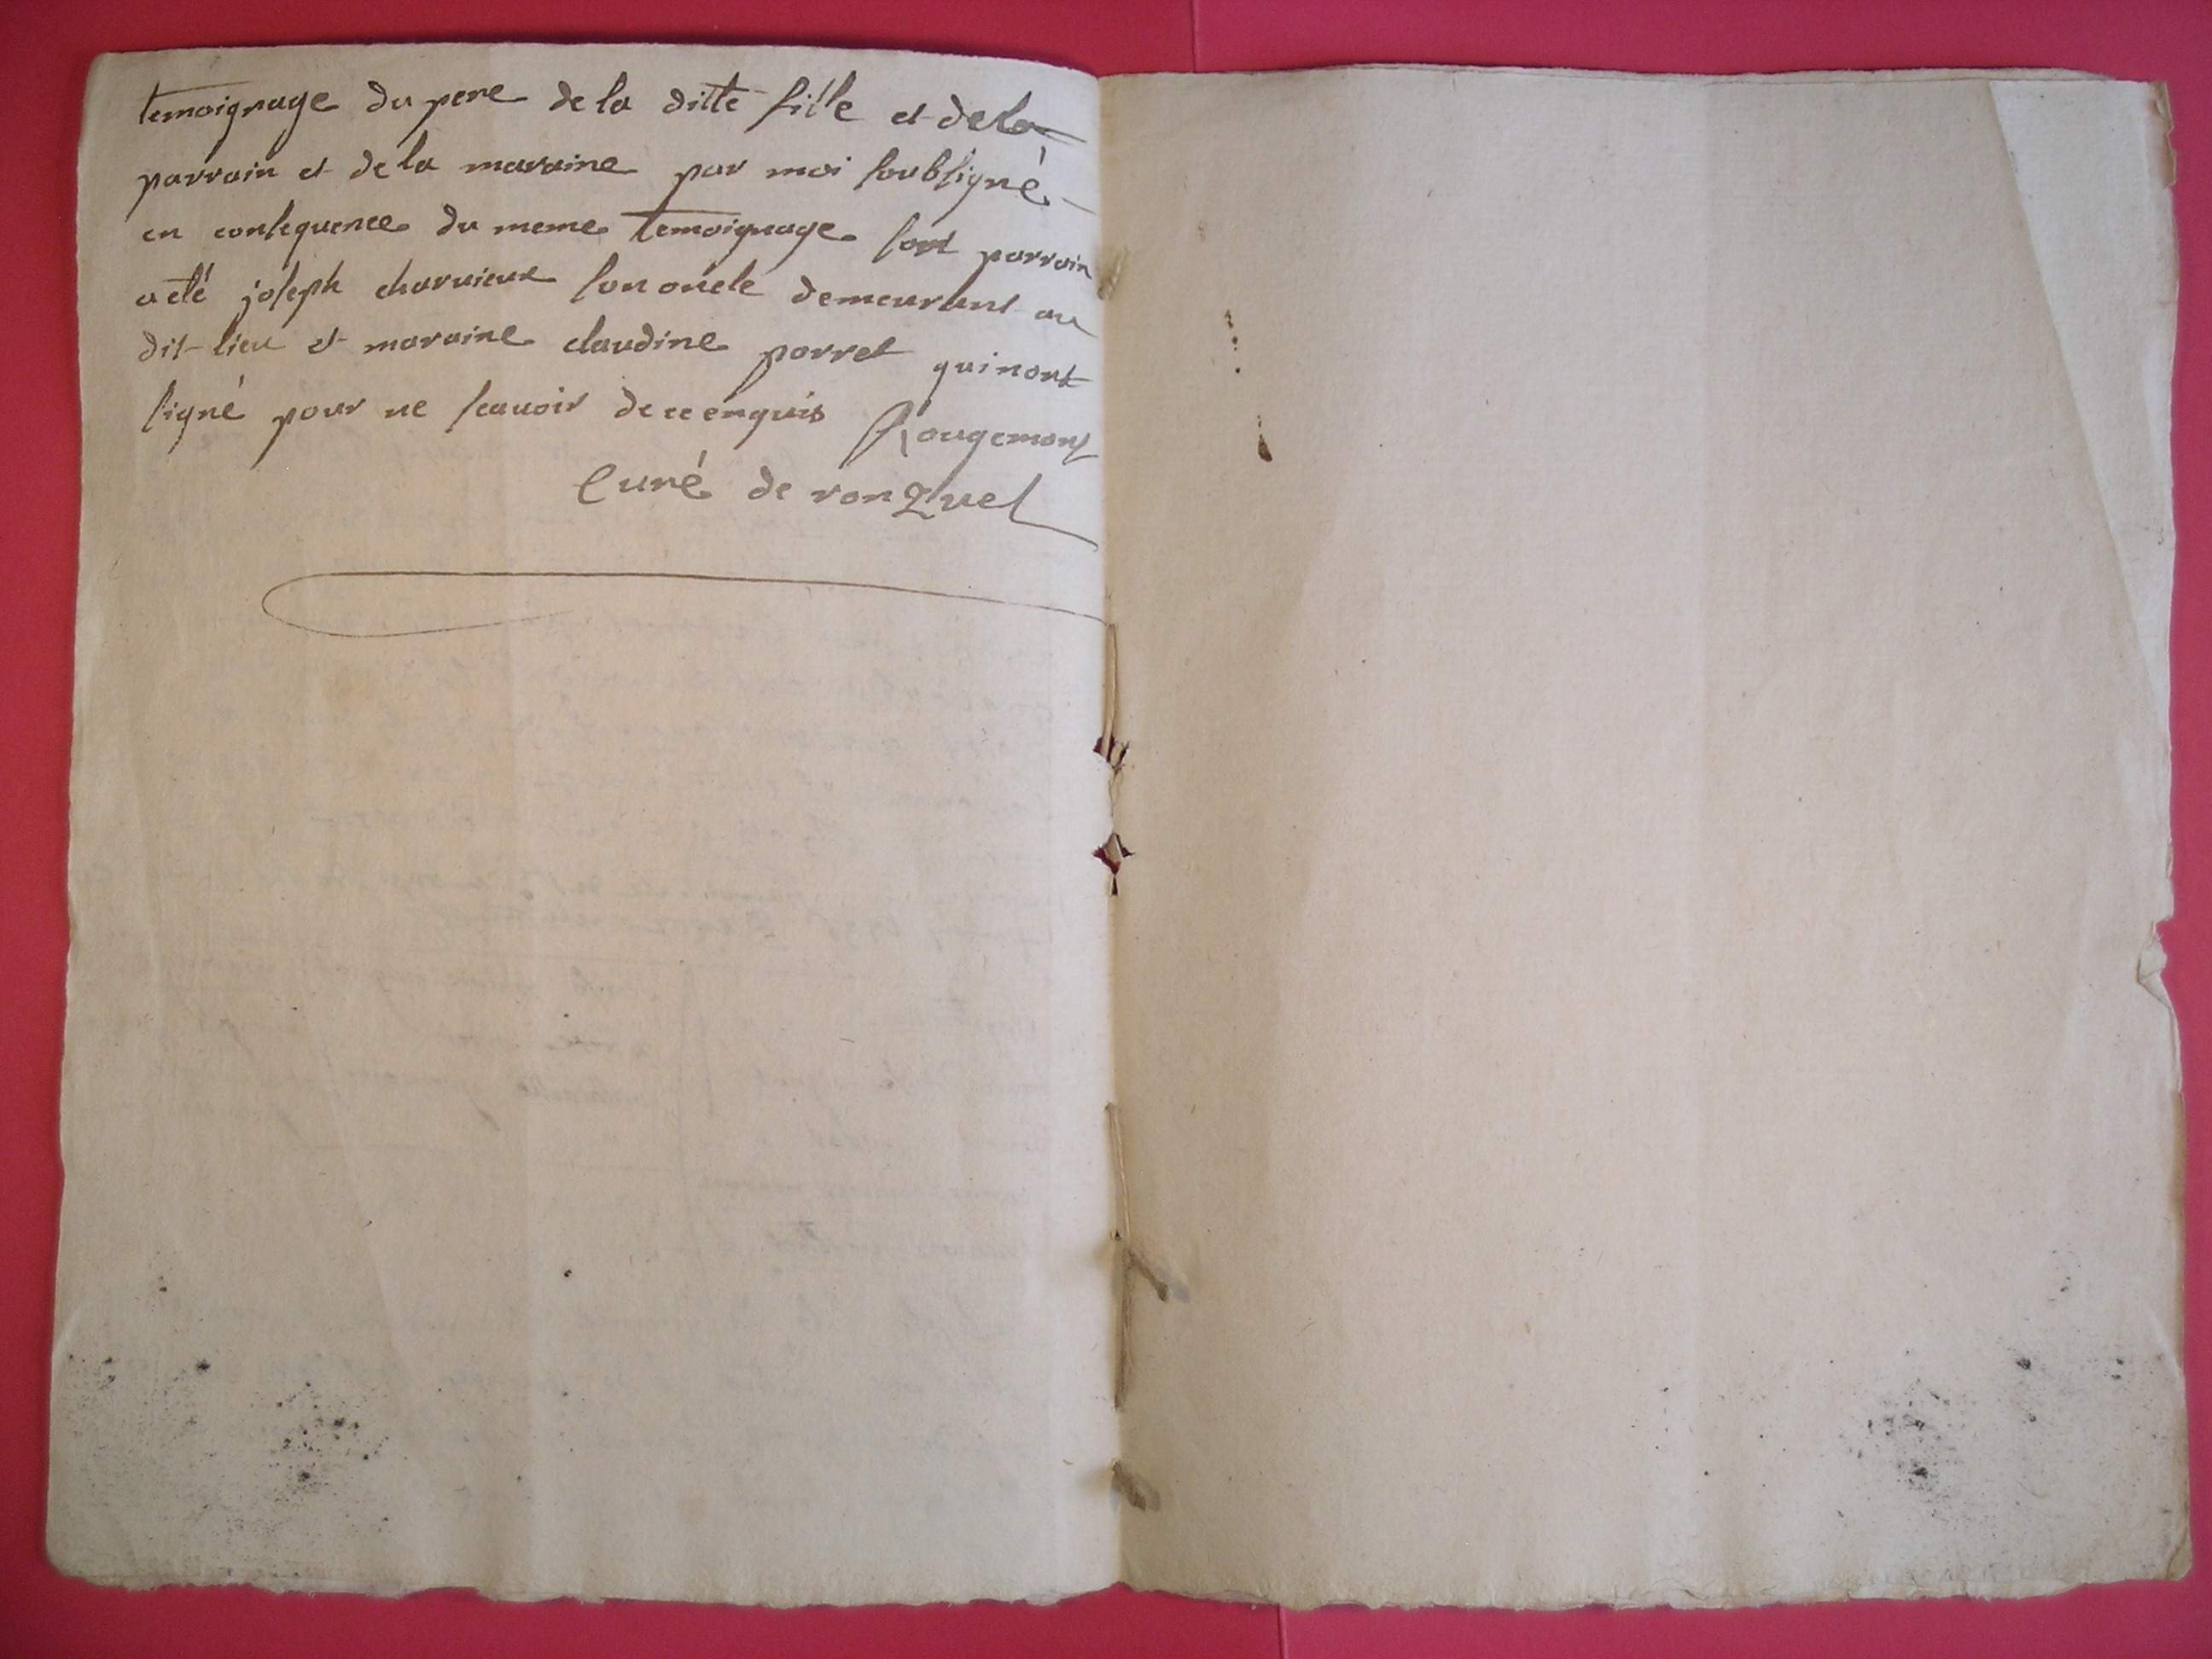 temoignage du pere de la ditte fille et de la
parrain et de la maraine par moi soubsigné
en consequence du meme temoignage son parrain
a eté joseph charvieux son oncle demeurant au
dit-lieu et maraine claudine porret qui nont
signé pour ne scavoir de ce enquis Rougemont
Curé de ronzuel